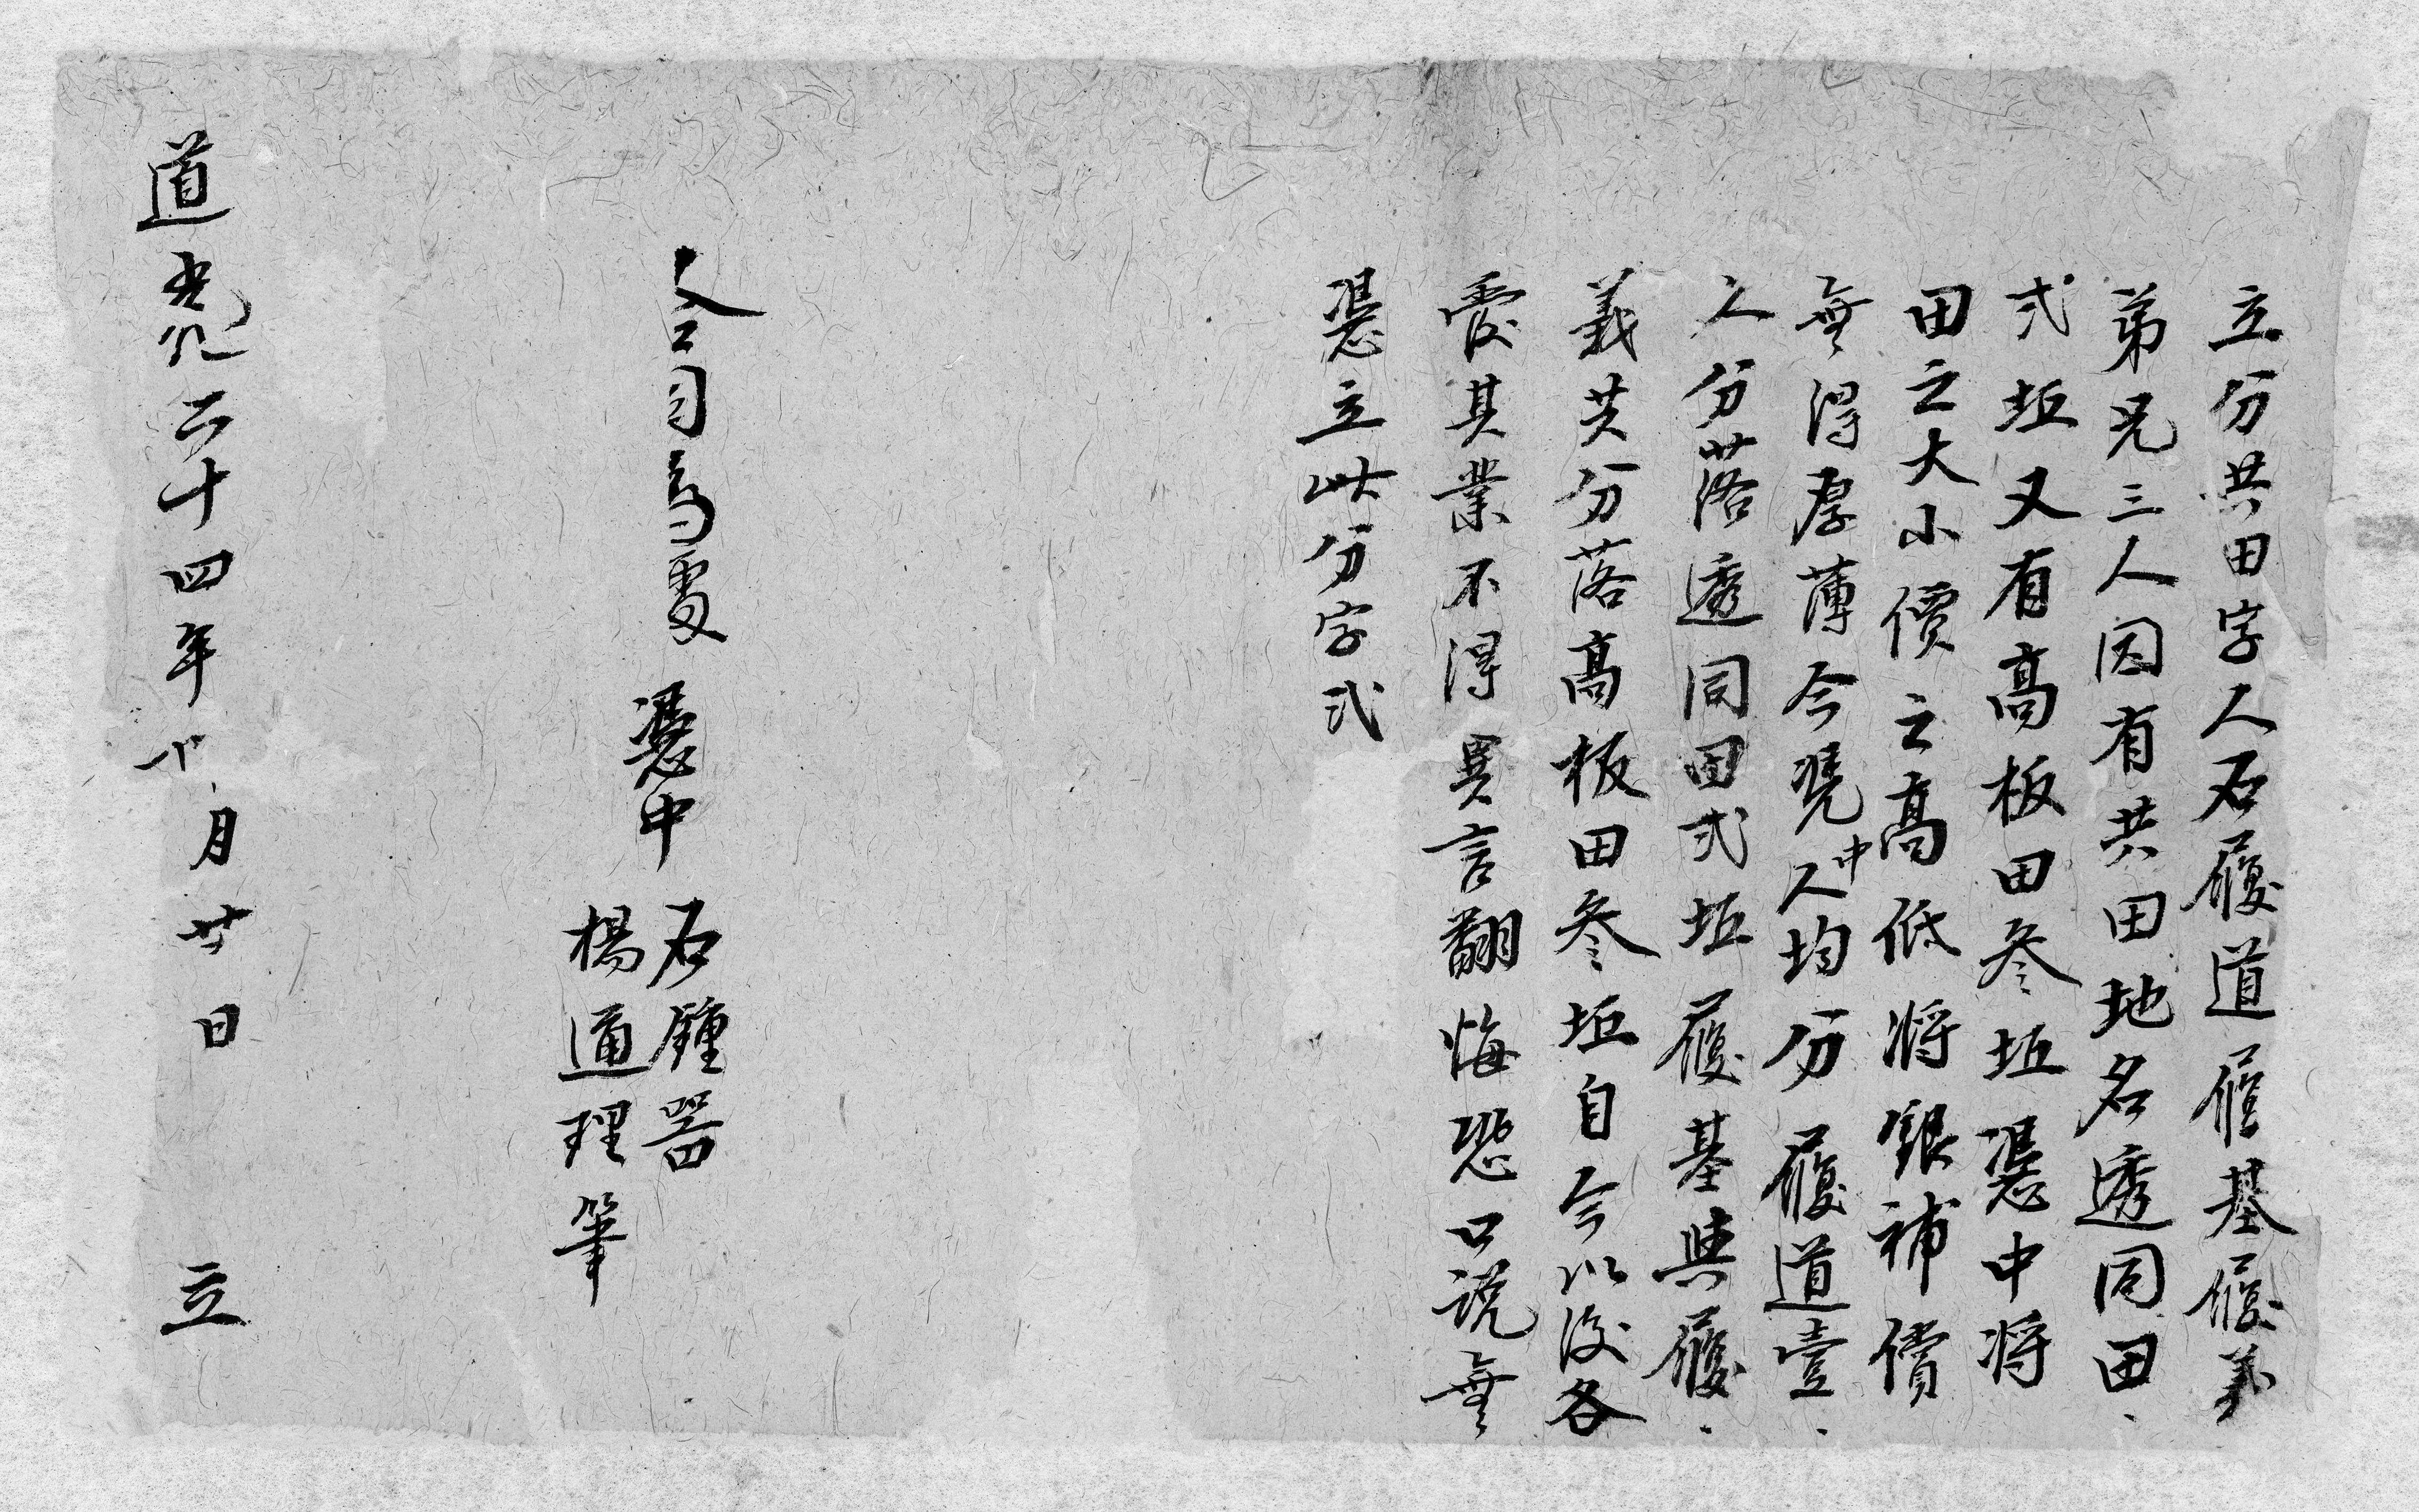 立分共田字人石履道履基履義
弟兄三人因有共田地名透同田
弍坵又有高板田叁坵憑中将
田之大小價之高低将銀補償
無得厚薄今凴中人均分履道壹
人分落透同田弍坵履基與履
義共分落高板田叁坵自今以後各
受其業不得異言翻悔恐口説無
憑立此分字弍
合同為
憑中
石鍾器
楊通理筆
道光二十四年 月廿日 立